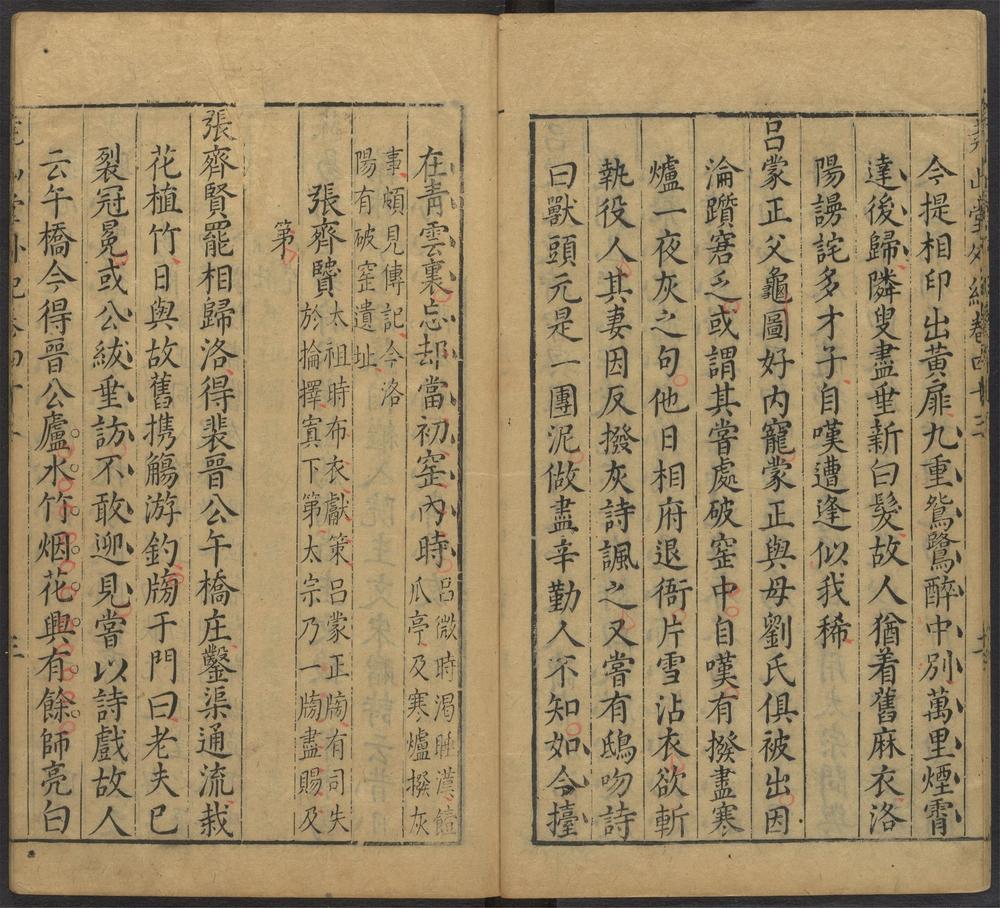 今提相印出黃扉九重鴛鷺醉中別萬里煙霄
達後歸隣叟盡垂新白髮故人猶着舊麻衣洛
陽謾詫多才子自嘆遭逢似我稀
呂蒙正父龜圖好內寵蒙正與母劉氏俱被出因
淪躓窘乏或謂其嘗處破窑中自嘆有撥盡寒
爐一夜灰之句他日相府退衙片雪沾衣欲斬
執役人其妻因反撥灰詩諷之又嘗有鴟吻詩
曰獸頭元是一團泥做盡辛勤人不知如今擡
在青雲裏忘却當初窑內時呂微時渴睡漢饐
瓜亭及寒爐撥灰
事頗見傳記今洛
陽有破窑遺址
張齊賢太祖時布衣獻策呂蒙正牓有司失
於掄擇寘下第太宗乃一牓盡賜及
第
張齊賢罷相歸洛得裴晉公午橋庄鑿渠通流栽
花植竹日與故舊携觴游釣牓于門曰老夫已
裂冠冕或公紱垂訪不敢迎見嘗以詩戲故人
云午橋今得晉公廬水竹烟花興有餘師亮白